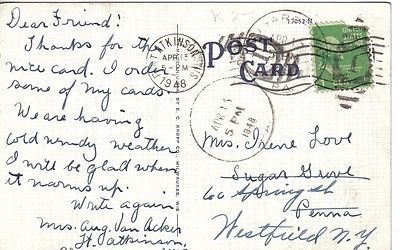 Dear Friend!
Thanks for the
nice card. I order
some of my cards.
We are having
cold windy weather
I will be glad when
it warms up.
Write again
Mrs. Aug. Van Acker
Ft. Atkinson,
FT. ATKINSON, WIS.
APR 13
5 - PM
1948
POST
CARD
17052-N
PA.
UNITED STATES
APR 15
5 PM
1948
E. C. KROPP CO., MILWAUKEE, WIS.
Mrs. Irene Love
Sugar Grove
60 Spring st
Penna
Westfield N.Y.